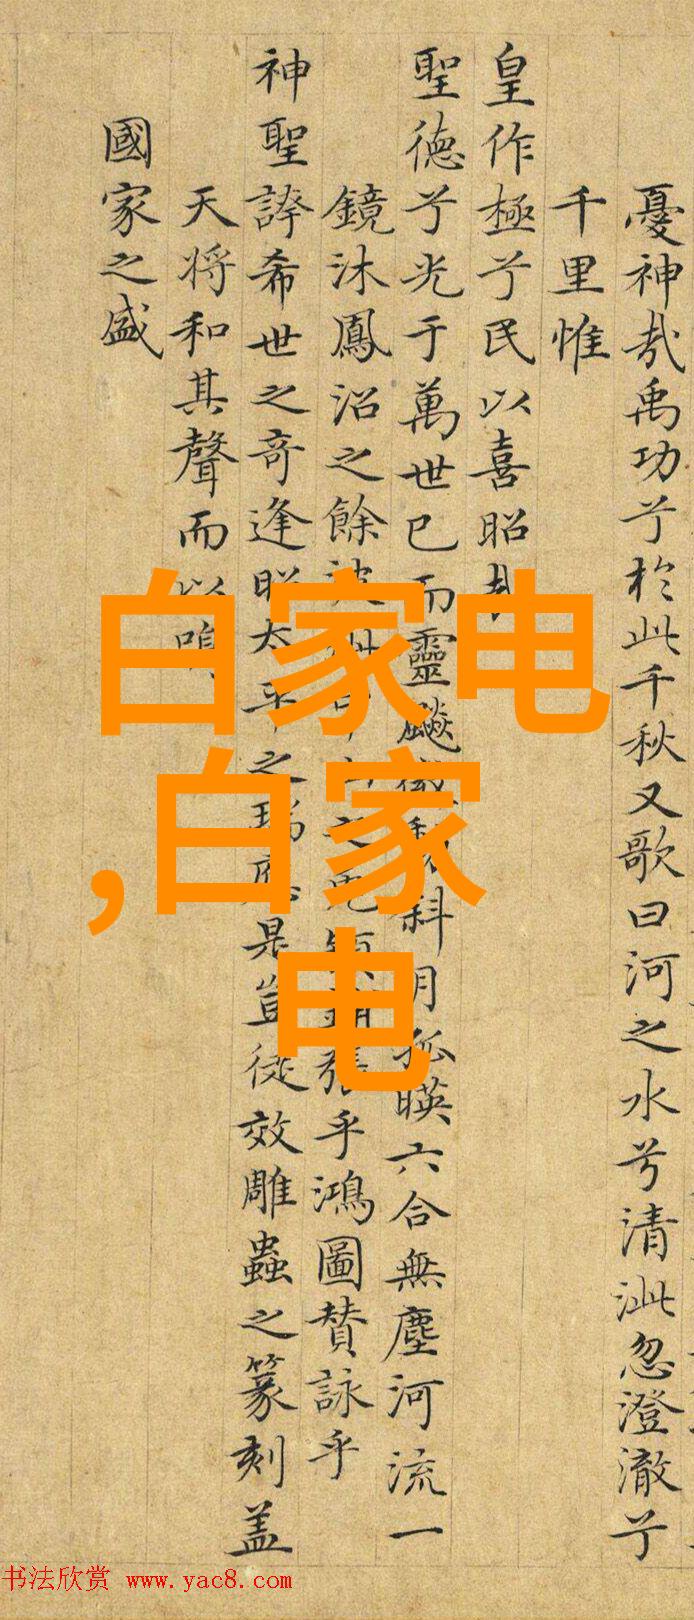 憂神哉禹功兮於此千秋又歌曰河之水兮清泚忽澄澈兮
千里惟
皇作極兮民以喜昭哉
聖德兮光于萬世已而靈飈微 科月孤暎六合無塵河流一
鏡沐鳳沼之餘波 張乎鴻圖贊詠乎
神聖諱希世之奇逢昭太平之瑞應是豈從效雕蟲之篆刻盖
天将和其聲而以鳴
國家之盛
白家电
,白家
电
书法欣赏 www.yac8.com